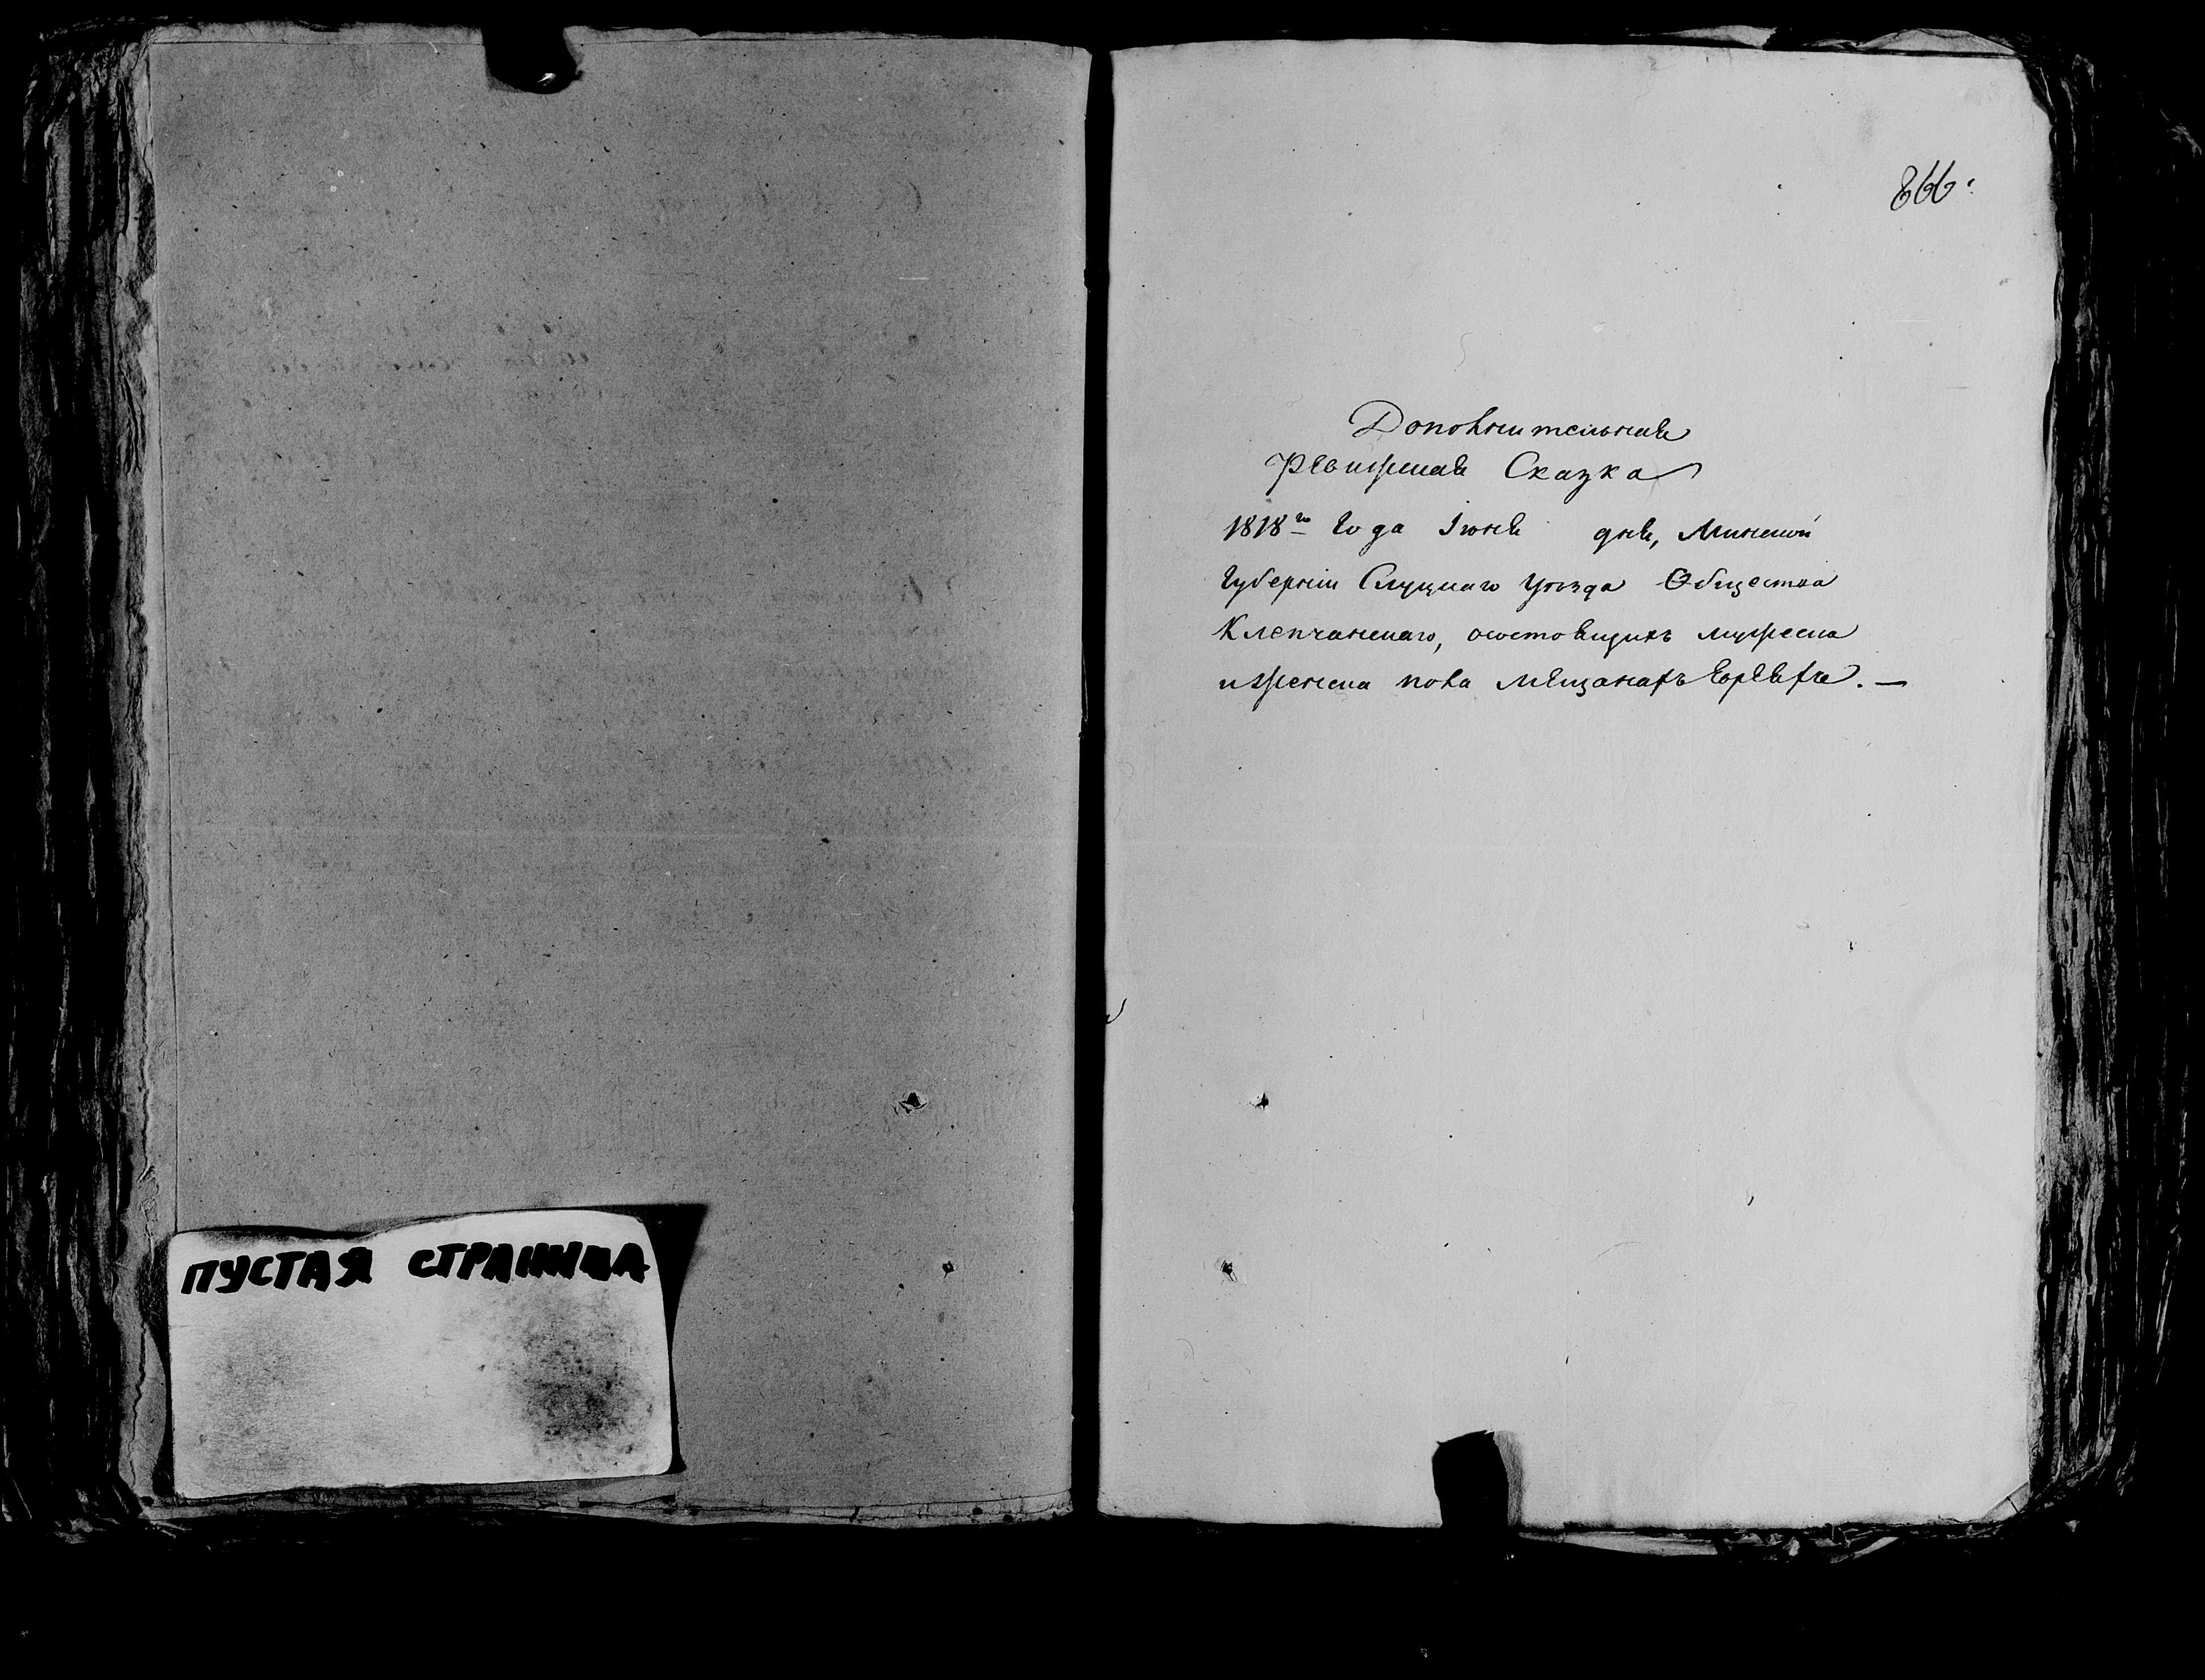 ПУСТАЯ СТРАНИЦА
866.
Дополнительная
Ревижская Сказка
1818го Года Iюня дня, Минской
Губернiи Слуцкаго Уезда Общества
Клепчанскаго, осостоящихъ мужеска
иженска пола мещанахъ Евреяхъ. —